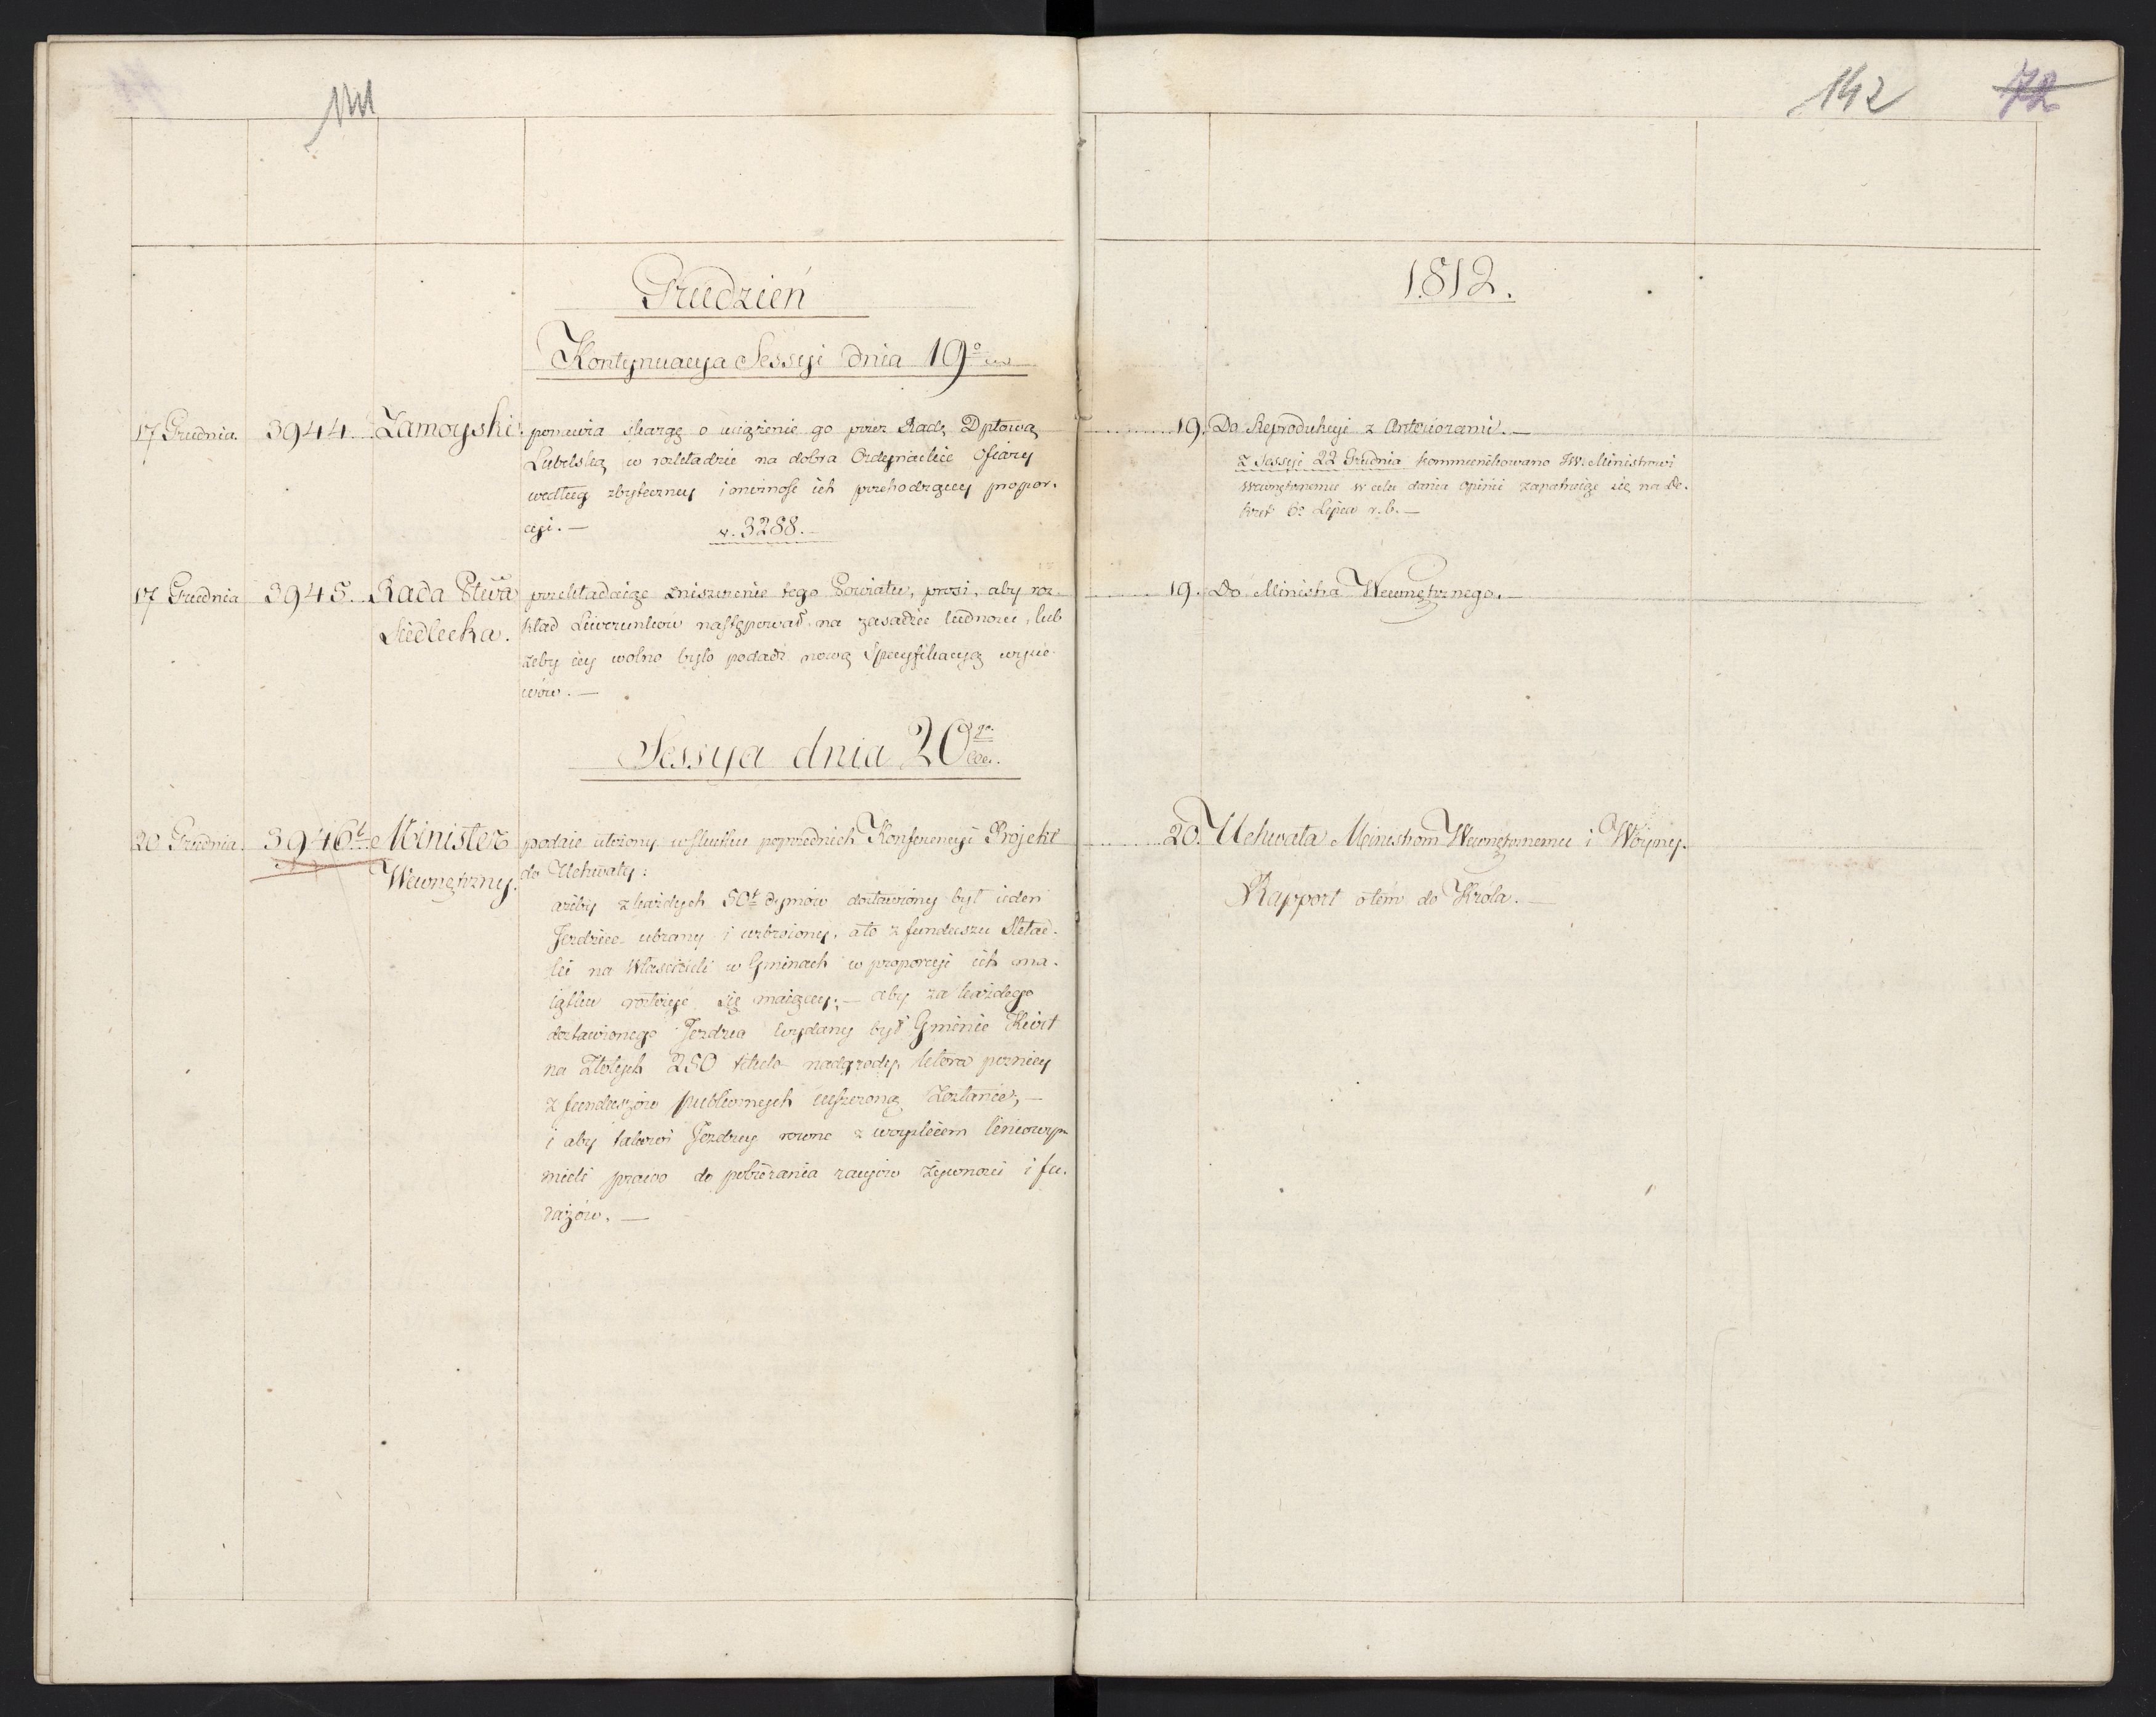 141
142 72
Grudzień
1812.
Kontynuacya Sessyi dnia 19º
17 Grudnia. 3944. Zamoyski. ponawia skargę o uciążenie go przez Radę Dptową
Lubelską w rozkładzie na dobra Ordynackie Ofiary
według zbyteczney i możność ich przechodzącey propor-
cyi. — v. 3288. —
19. Do Reprodukcyi z Anteriorami. —
z Sessyi 22 Grudnia kommunikowano JW. Ministrowi
Wewnętrznemu w celu dania opinii zapatruiąc się na De-
kret 6º Lipca r. b. —
17 Grudnia 3945. Rada Ptwa
Siedlecka.
przekładaiąc zniszczenie tego Powiatu, prosi, aby roz-
kład Liwerunków następował na zasadzie ludności, lub
żeby iey wolno było podadź nową Specyfikacyą wysie-
wów. —
19. Do Ministra Wewnętrznego. —
Sessya dnia 20go
20 Grudnia. 3946 Minister
Wewnętrzny.
podaie ułożony w skutku poprzednich Konferencyi Projekt
do Uchwały:
ażeby z każdych 50t dymów dostawiony był ieden
Jezdziec ubrany i uzbroiony, a to z funduszu Skład-
ki na Właścicieli w Gminach w proporcyi ich ma-
iątku rozłożyć się maiącey; — aby za każdego
dostawionego Jezdzca wydany był Gminie Kwit
na Złotych 250 tytułem nadgrody, która pozniey
z funduszów publicznych uiszczoną zostanie; —
i aby takowi Jezdzcy rowno z woyskiem liniowym
mieli prawo do pobierania racyów żywności i fu-
rażów. —
20. Uchwała Ministrom Wewnętrznemu i Woyny.
Rapport o tém do Króla. —